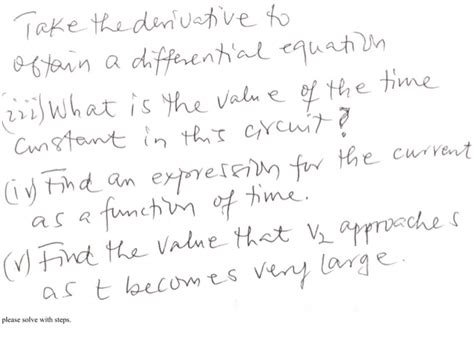 Take the derivative to
obtain a differential equation
(iii) What is the value of the time
constant in this circuit?
(iv) Find an expression for the current
as a function of time.
(v) Find the value that V₂ approaches
as t becomes very large.
please solve with steps.